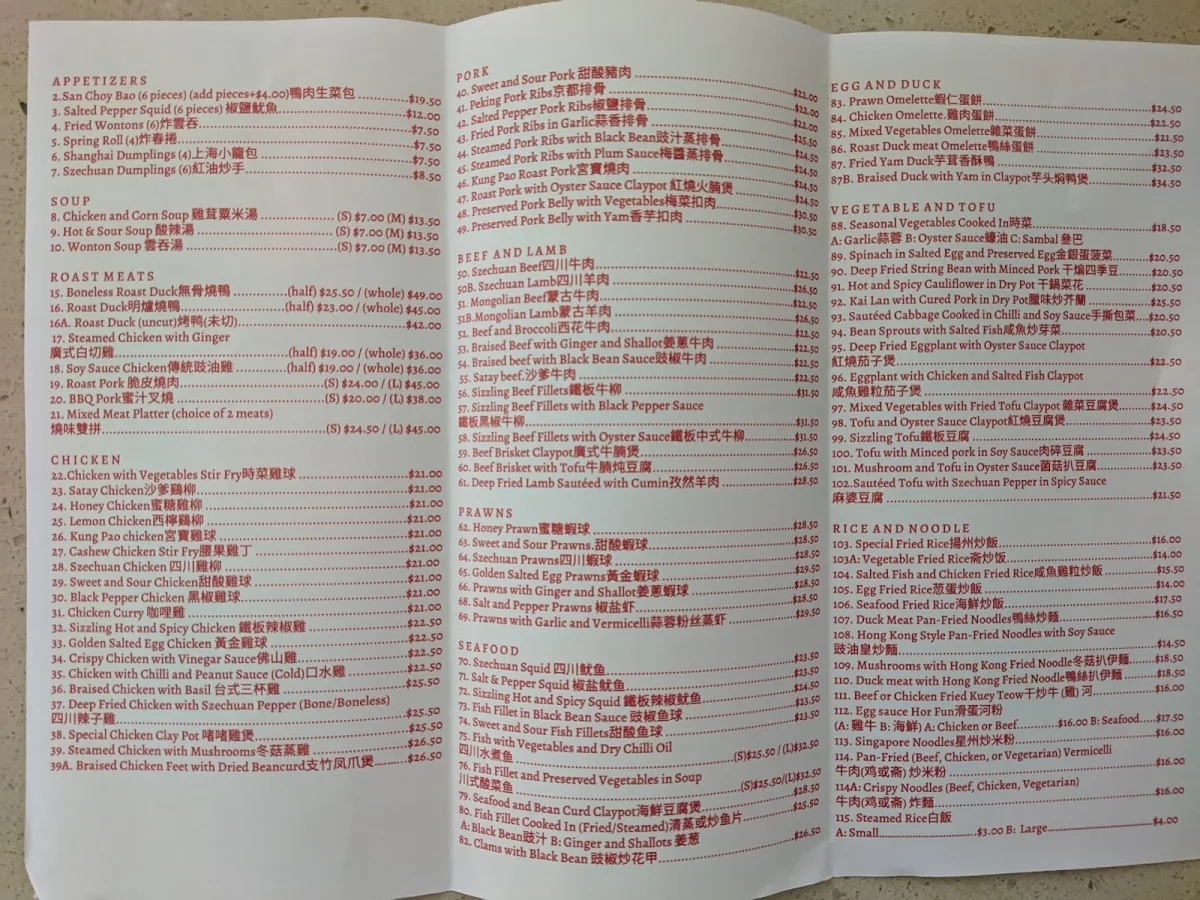 APPETIZERS
2.San Choy Bao (6 pieces) (add pieces+$4.00)鴨肉生菜包 $19.50
3. Salted Pepper Squid (6 pieces) 椒鹽魷魚 $12.00
4. Fried Wontons (6)炸雲吞 $7.50
5. Spring Roll (4)炸春捲 $7.50
6. Shanghai Dumplings (4)上海小籠包 $7.50
7. Szechuan Dumplings (6)紅油炒手 $8.50
SOUP
8. Chicken and Corn Soup 雞茸粟米湯 (S) $7.00 (M) $13.50
9. Hot & Sour Soup 酸辣湯 (S) $7.00 (M) $13.50
10. Wonton Soup 雲吞湯 (S) $7.00 (M) $13.50
ROAST MEATS
15. Boneless Roast Duck無骨燒鴨 (half) $25.50 / (whole) $49.00
16. Roast Duck明爐燒鴨 (half) $23.00 / (whole) $45.00
16A. Roast Duck (uncut)烤鸭(未切) $42.00
17. Steamed Chicken with Ginger
廣式白切雞 (half) $19.00 / (whole) $36.00
18. Soy Sauce Chicken傳統豉油雞 (half) $19.00 / (whole) $36.00
19. Roast Pork 脆皮燒肉 (S) $24.00 / (L) $45.00
20. BBQ Pork蜜汁叉燒 (S) $20.00 / (L) $38.00
21. Mixed Meat Platter (choice of 2 meats)
燒味雙拼 (S) $24.50 / (L) $45.00
CHICKEN
22.Chicken with Vegetables Stir Fry時菜雞球 $21.00
23. Satay Chicken沙爹鷄柳 $21.00
24. Honey Chicken蜜糖雞柳 $21.00
25. Lemon Chicken西檸鷄柳 $21.00
26. Kung Pao chicken宮寶雞球 $21.00
27. Cashew Chicken Stir Fry腰果雞丁 $21.00
28. Szechuan Chicken 四川雞柳 $21.00
29. Sweet and Sour Chicken甜酸雞球 $21.00
30. Black Pepper Chicken 黑椒雞球 $21.00
31. Chicken Curry 咖哩雞 $21.00
32. Sizzling Hot and Spicy Chicken 鐵板辣椒雞 $22.50
33. Golden Salted Egg Chicken 黃金雞球 $22.50
34. Crispy Chicken with Vinegar Sauce佛山雞 $22.50
35. Chicken with Chilli and Peanut Sauce (Cold)口水雞 $22.50
36. Braised Chicken with Basil 台式三杯雞 $25.50
37. Deep Fried Chicken with Szechuan Pepper (Bone/Boneless)
四川辣子雞 $25.50
38. Special Chicken Clay Pot 啫啫雞煲 $25.50
39. Steamed Chicken with Mushrooms冬菇蒸雞 $26.50
39A. Braised Chicken Feet with Dried Beancurd支竹凤爪煲 $26.50
PORK
40. Sweet and Sour Pork 甜酸豬肉 $22.00
41. Peking Pork Ribs京都排骨 $22.00
42. Salted Pepper Pork Ribs椒鹽排骨 $22.00
43. Fried Pork Ribs in Garlic蒜香排骨 $22.00
44. Steamed Pork Ribs with Black Bean豉汁蒸排骨 $25.50
45. Steamed Pork Ribs with Plum Sauce梅醬蒸排骨 $24.50
46. Kung Pao Roast Pork宮寶燒肉 $24.50
47. Roast Pork with Oyster Sauce Claypot 紅燒火腩煲 $24.50
48. Preserved Pork Belly with Vegetables梅菜扣肉 $30.50
49. Preserved Pork Belly with Yam香芋扣肉 $30.50
BEEF AND LAMB
50. Szechuan Beef四川牛肉 $22.50
50B. Szechuan Lamb四川羊肉 $26.50
51. Mongolian Beef蒙古牛肉 $22.50
51B.Mongolian Lamb蒙古羊肉 $26.50
52. Beef and Broccoli西花牛肉 $22.50
53. Braised Beef with Ginger and Shallot姜蔥牛肉 $22.50
54. Braised beef with Black Bean Sauce豉椒牛肉 $22.50
55. Satay beef.沙爹牛肉 $22.50
56. Sizzling Beef Fillets鐵板牛柳 $31.50
57. Sizzling Beef Fillets with Black Pepper Sauce
鐵板黑椒牛柳 $31.50
58. Sizzling Beef Fillets with Oyster Sauce鐵板中式牛柳 $31.50
59. Beef Brisket Claypot廣式牛腩煲 $26.50
60. Beef Brisket with Tofu牛腩炖豆腐 $26.50
61. Deep Fried Lamb Sautéed with Cumin孜然羊肉 $28.50
PRAWNS
62. Honey Prawn蜜糖蝦球 $28.50
63. Sweet and Sour Prawns.甜酸蝦球 $28.50
64. Szechuan Prawns四川蝦球 $28.50
65. Golden Salted Egg Prawns黃金蝦球 $29.50
66. Prawns with Ginger and Shallot姜蔥蝦球 $28.50
68. Salt and Pepper Prawns 椒盐虾 $28.50
69. Prawns with Garlic and Vermicelli蒜蓉粉丝蒸虾 $29.50
SEAFOOD
70. Szechuan Squid 四川鱿鱼 $23.50
71. Salt & Pepper Squid 椒盐鱿鱼 $23.50
72. Sizzling Hot and Spicy Squid 鐵板辣椒鱿鱼 $24.50
73. Fish Fillet in Black Bean Sauce 豉椒鱼球 $23.50
74. Sweet and Sour Fish Fillets甜酸鱼球 $23.50
75. Fish with Vegetables and Dry Chilli Oil
四川水煮鱼 (S)$25.50 / (L)$32.50
76. Fish Fillet and Preserved Vegetables in Soup
川式酸菜鱼 (S)$25.50/(L)$32.50
79. Seafood and Bean Curd Claypot海鮮豆腐煲 $28.50
80. Fish Fillet Cooked In (Fried/Steamed)清蒸或炒鱼片 $25.50
A:Black Bean豉汁 B: Ginger and Shallots 姜葱
82. Clams with Black Bean 豉椒炒花甲 $26.50
EGG AND DUCK
83. Prawn Omelette蝦仁蛋餅 $24.50
84. Chicken Omelette.雞肉蛋餅 $22.50
85. Mixed Vegetables Omelette雜菜蛋餅 $21.50
86. Roast Duck meat Omelette鴨絲蛋餅 $23.50
87. Fried Yam Duck芋茸香酥鴨 $32.50
87B. Braised Duck with Yam in Claypot芋头焖鸭煲 $34.50
VEGETABLE AND TOFU
88. Seasonal Vegetables Cooked In時菜 $18.50
A: Garlic蒜蓉 B: Oyster Sauce蠔油 C: Sambal 叄巴
89. Spinach in Salted Egg and Preserved Egg金銀蛋菠菜 $20.50
90. Deep Fried String Bean with Minced Pork 干煸四季豆 $20.50
91. Hot and Spicy Cauliflower in Dry Pot 干鍋菜花 $20.50
92. Kai Lan with Cured Pork in Dry Pot臘味炒芥蘭 $25.50
93. Sautéed Cabbage Cooked in Chilli and Soy Sauce手撕包菜 $20.50
94. Bean Sprouts with Salted Fish咸魚炒芽菜 $20.50
95. Deep Fried Eggplant with Oyster Sauce Claypot
紅燒茄子煲 $22.50
96. Eggplant with Chicken and Salted Fish Claypot
咸魚雞粒茄子煲 $22.50
97. Mixed Vegetables with Fried Tofu Claypot 雜菜豆腐煲 $24.50
98. Tofu and Oyster Sauce Claypot紅燒豆腐煲 $23.50
99. Sizzling Tofu鐵板豆腐 $24.50
100. Tofu with Minced pork in Soy Sauce肉碎豆腐 $23.50
101. Mushroom and Tofu in Oyster Sauce菌菇扒豆腐 $23.50
102.Sautéed Tofu with Szechuan Pepper in Spicy Sauce
麻婆豆腐 $21.50
RICE AND NOODLE
103. Special Fried Rice揚州炒飯 $16.00
103A: Vegetable Fried Rice斋炒饭 $14.00
104. Salted Fish and Chicken Fried Rice咸魚雞粒炒飯 $15.50
105. Egg Fried Rice葱蛋炒飯 $14.00
106. Seafood Fried Rice海鮮炒飯 $17.50
107. Duck Meat Pan-Fried Noodles鴨絲炒麵 $16.50
108. Hong Kong Style Pan-Fried Noodles with Soy Sauce
豉油皇炒麵 $14.50
109. Mushrooms with Hong Kong Fried Noodle冬菇扒伊麵 $18.50
110. Duck meat with Hong Kong Fried Noodle鴨絲扒伊麵 $18.50
111. Beef or Chicken Fried Kuey Teow干炒牛 (雞) 河 $16.00
112. Egg sauce Hor Fun滑蛋河粉
(A: 雞牛 B: 海鮮) A: Chicken or Beef $16.00 B: Seafood $17.50
113. Singapore Noodles星州炒米粉 $16.00
114. Pan-Fried (Beef, Chicken, or Vegetarian) Vermicelli
牛肉(鸡或斋) 炒米粉 $16.00
114A: Crispy Noodles (Beef, Chicken, Vegetarian)
牛肉(鸡或斋) 炸麵 $16.00
115. Steamed Rice白飯
A: Small $3.00 B: Large $4.00